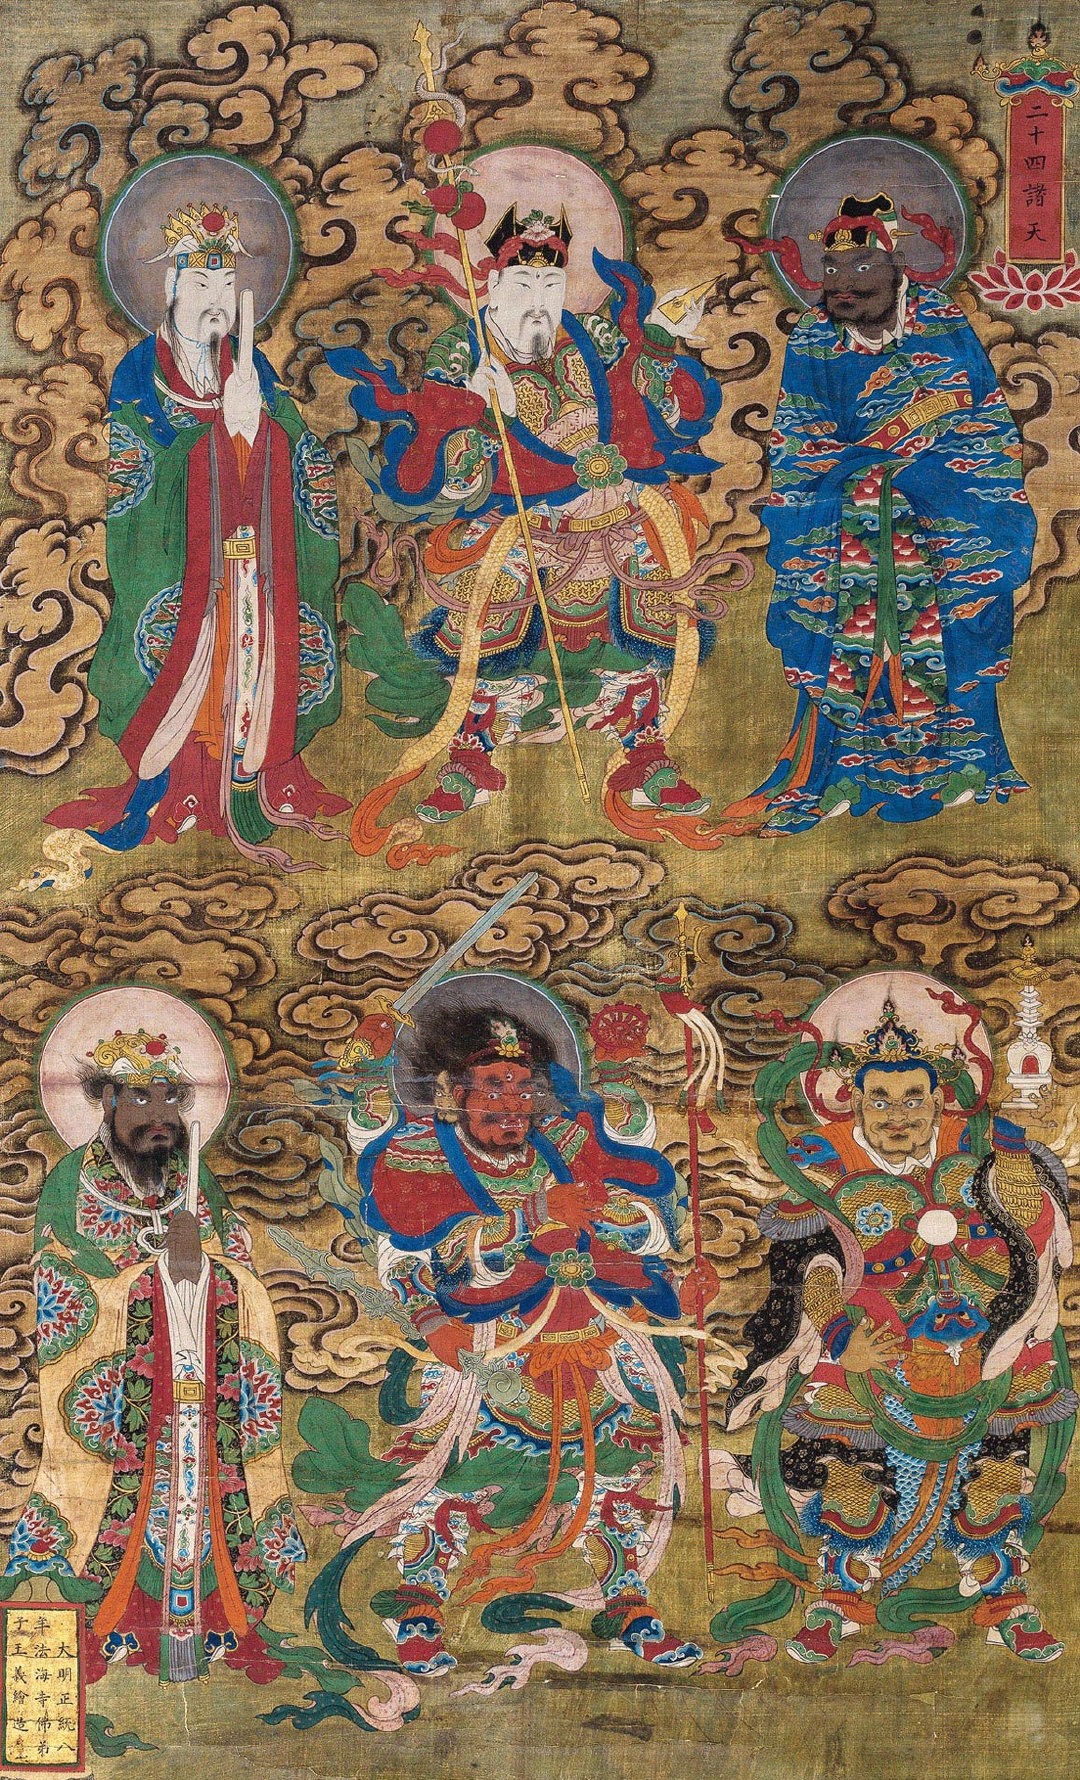 二十四諸天
大明正統八
年法海寺佛弟
子王義繪造